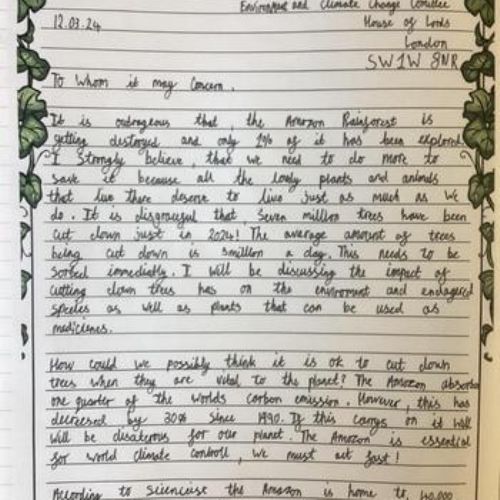 Environment and Climate Change Comittee
12.03.24
House of Lords
London
SW1W 8NR
To Whom it may concern,
It is outrageous that, the Amazon Rainforest is
getting destroyed and only 1% of it has been explored.
I strongly believe, that we need to do more to
save it because all the lovely plants and animals
that live there deserve to live just as much as we
do. It is disgraceful that, Seven million trees have been
cut down just in 2024! The average amount of trees
being cut down is 5million a day. This needs to be
Sorted immediately. I will be discussing the impact of
cutting down trees has on the enviroment and endagered
species as well as plants that can be used as
medicines.
How could we possibly think it is ok to cut down
trees when they are vital to the planet? The Amazon absorbs
one quarter of the worlds carbon emission. However, this has
decreesed by 30% since 1990. If this carrys on it will
will be disaterous for our planet. The Amazon is essential
for world climate controll, we must act fast!
According to sciencist the Amazon is home to 40,000